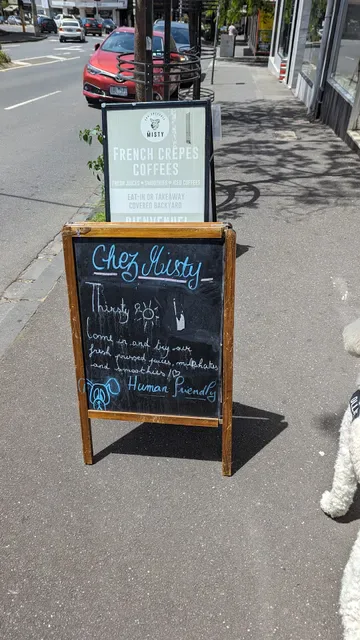 MISTY
FRENCH CRÊPES
COFFEES
EAT-IN OR TAKEAWAY
COVERED BACKYARD
BIENVENUE!
Chez Misty
Thirsty
Come in and try our
fresh pressed juices, milkshakes
and smoothies
Human Friendly